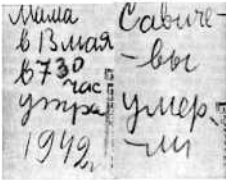 Мама
в 13 мая
в 730
час
утра
1942 г
Савиче-
-вы
умер.
-ли